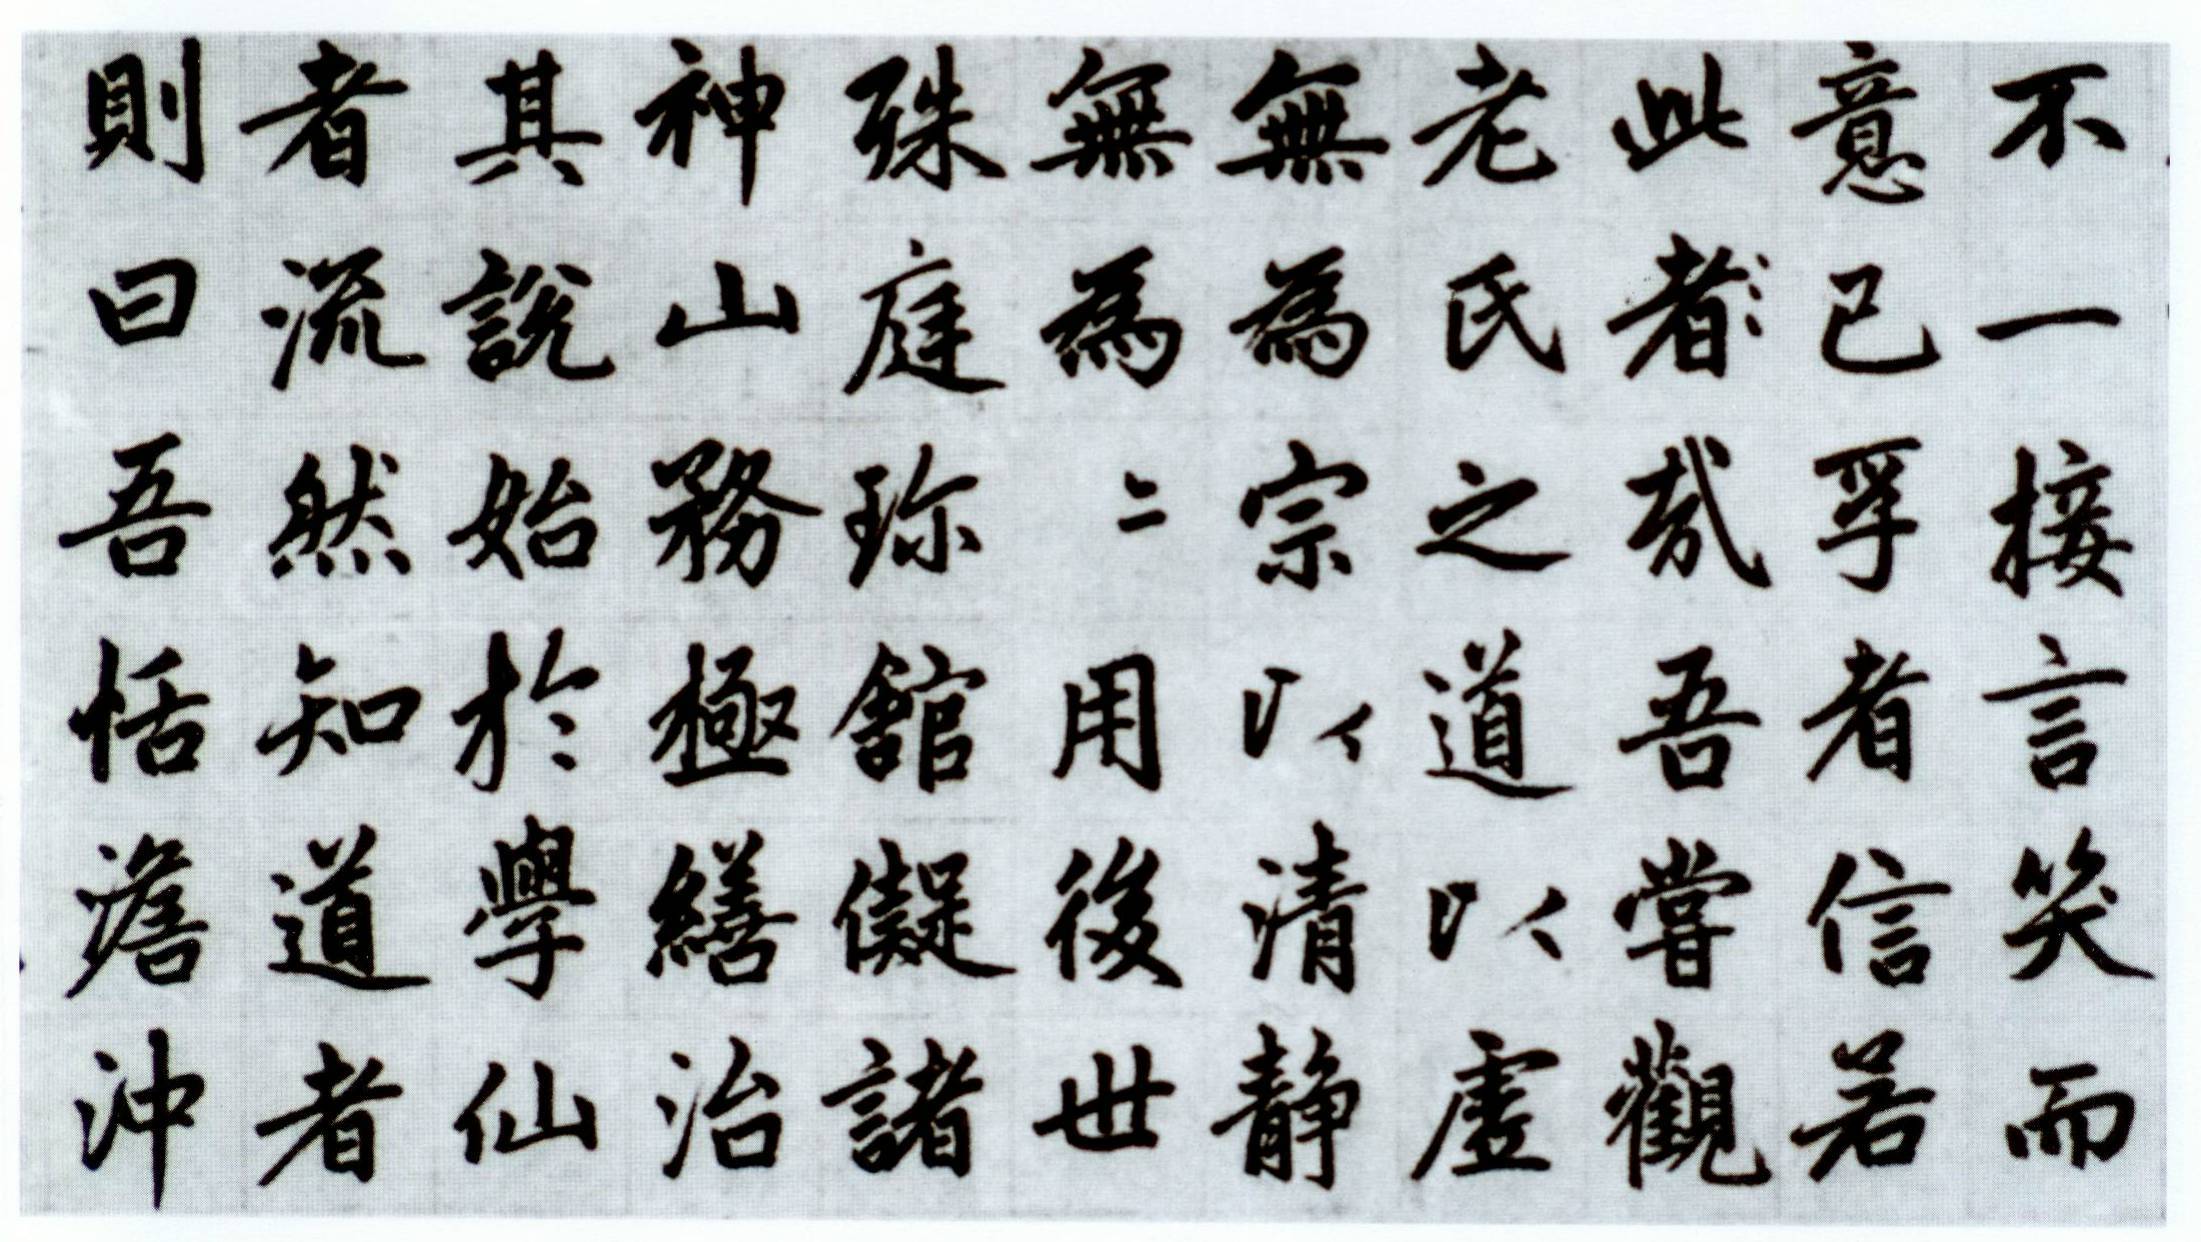 不一接言笑而
意已孚者信若
此者哉吾嘗觀
老氏之道以虛
無為宗以清靜
無為〻用後世
殊庭珎館儗諸
神山務極繕治
其說始於學仙
者流然知道者
則曰吾恬澹沖